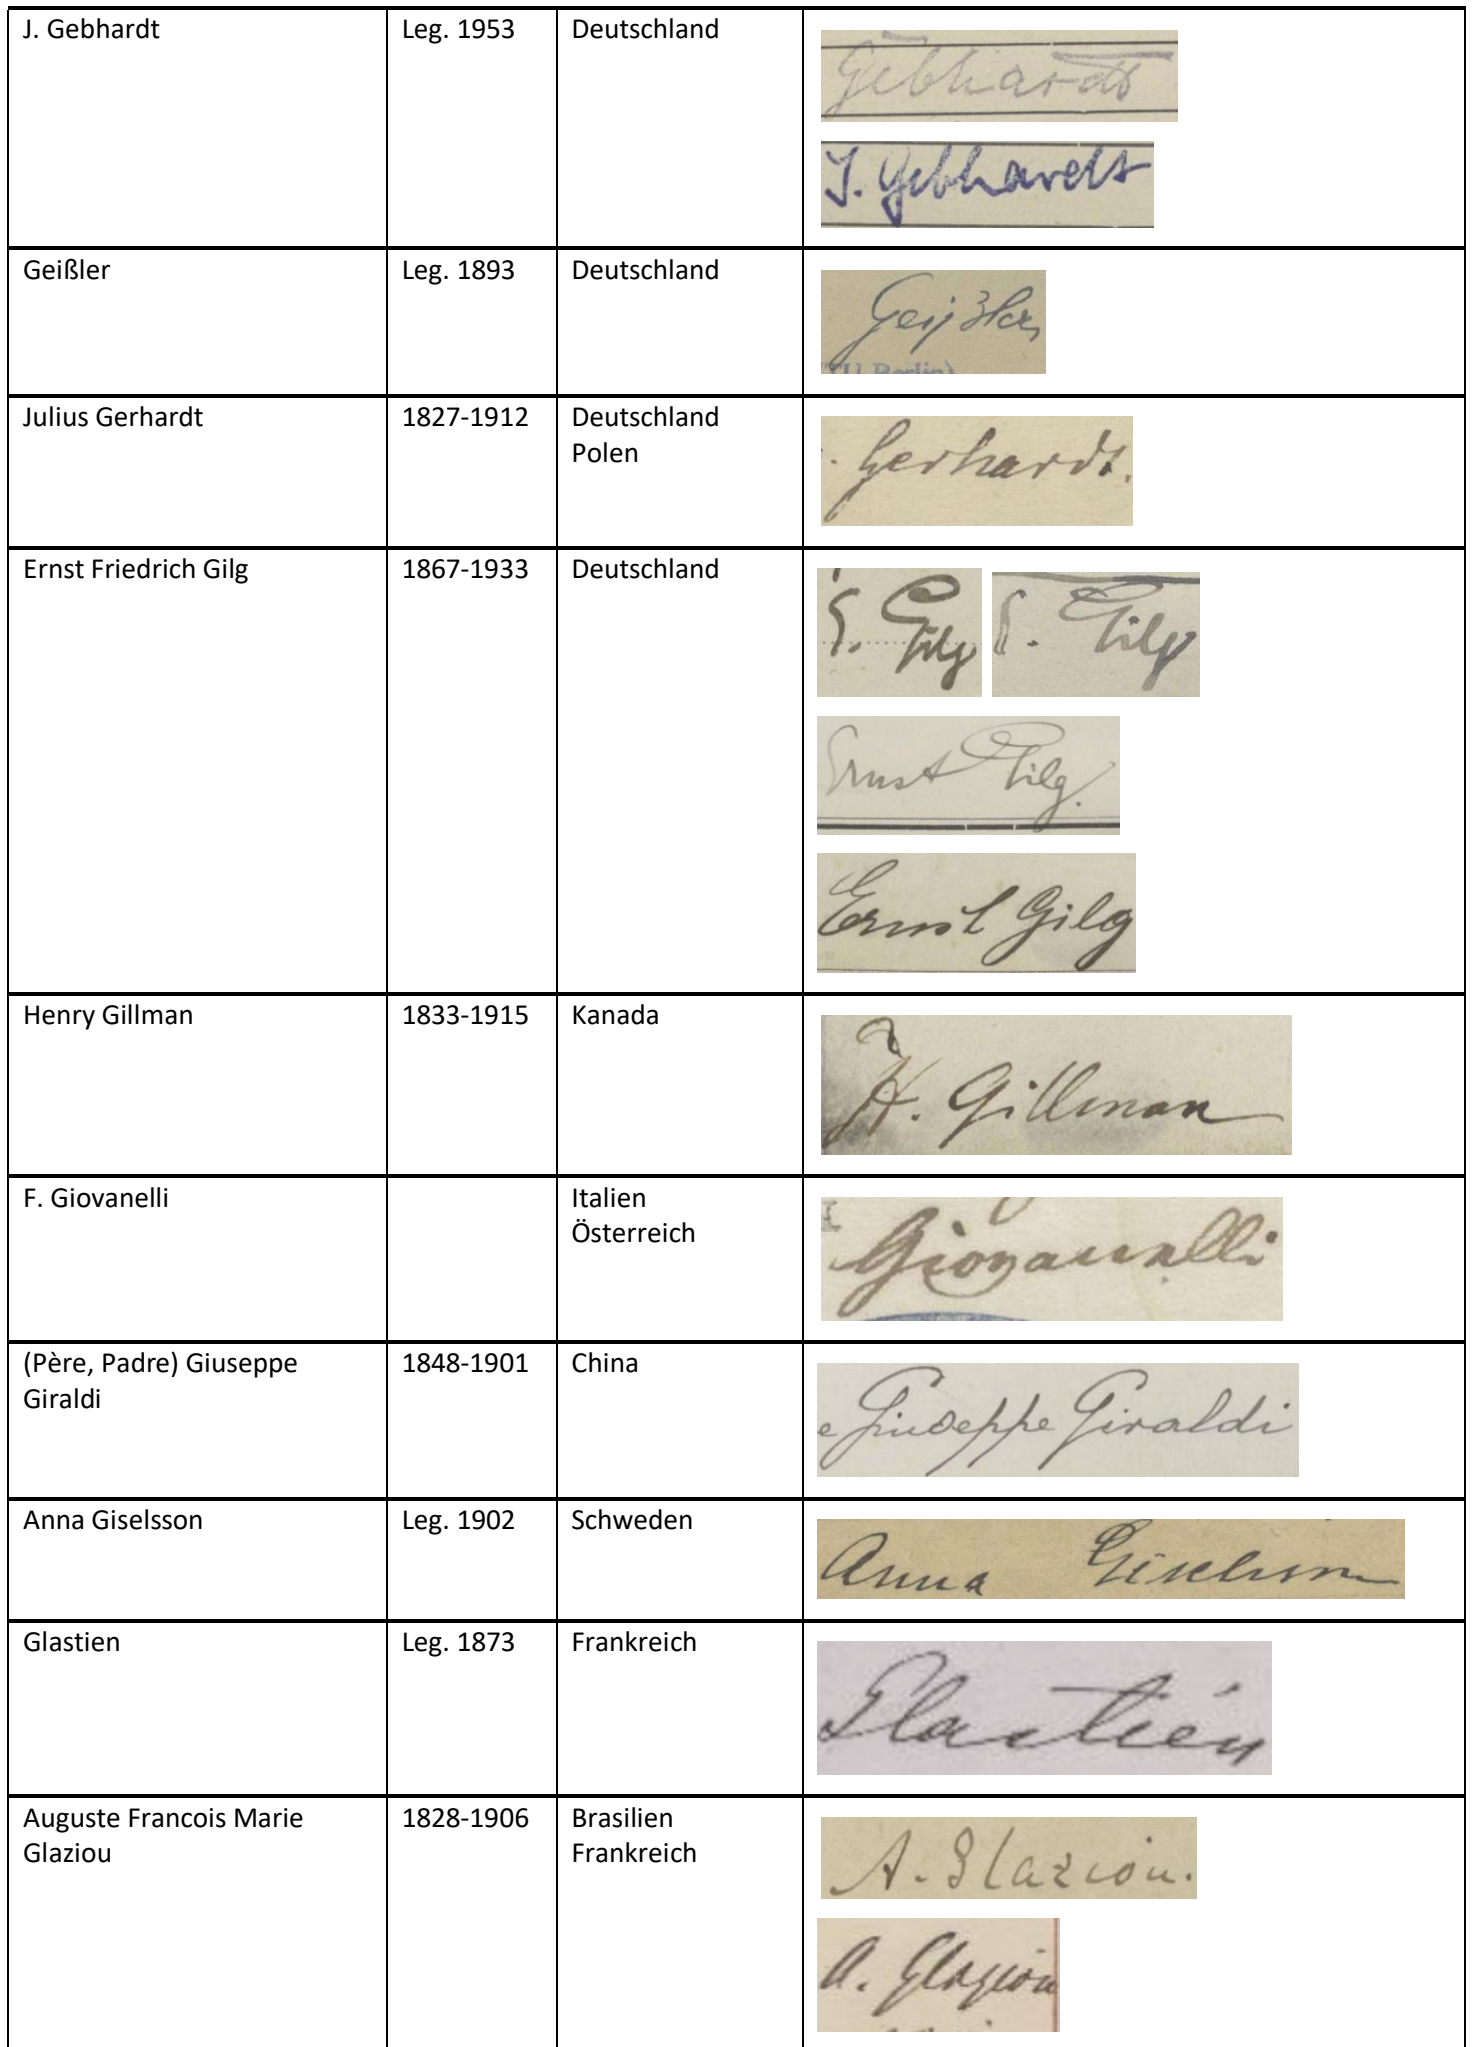 J. Gebhardt Leg. 1953 Deutschland
Gebhardt
J. Gebhardt
Geißler Leg. 1893 Deutschland
Geißler
Julius Gerhardt 1827-1912 Deutschland
Polen
Gerhardt.
Ernst Friedrich Gilg 1867-1933 Deutschland
E. Gilg E. Gilg
Ernst Gilg.
Ernst Gilg
Henry Gillman 1833-1915 Kanada
H. Gillman
F. Giovanelli Italien
Österreich
Giovanelli
(Père, Padre) Giuseppe 1848-1901 China
Giraldi
e Giuseppe Giraldi
Anna Giselsson Leg. 1902 Schweden
Anna Giselsson
Glastien Leg. 1873 Frankreich
Glastien
Auguste Francois Marie 1828-1906 Brasilien
Glaziou Frankreich
A. Glaziou.
A. Glaziou